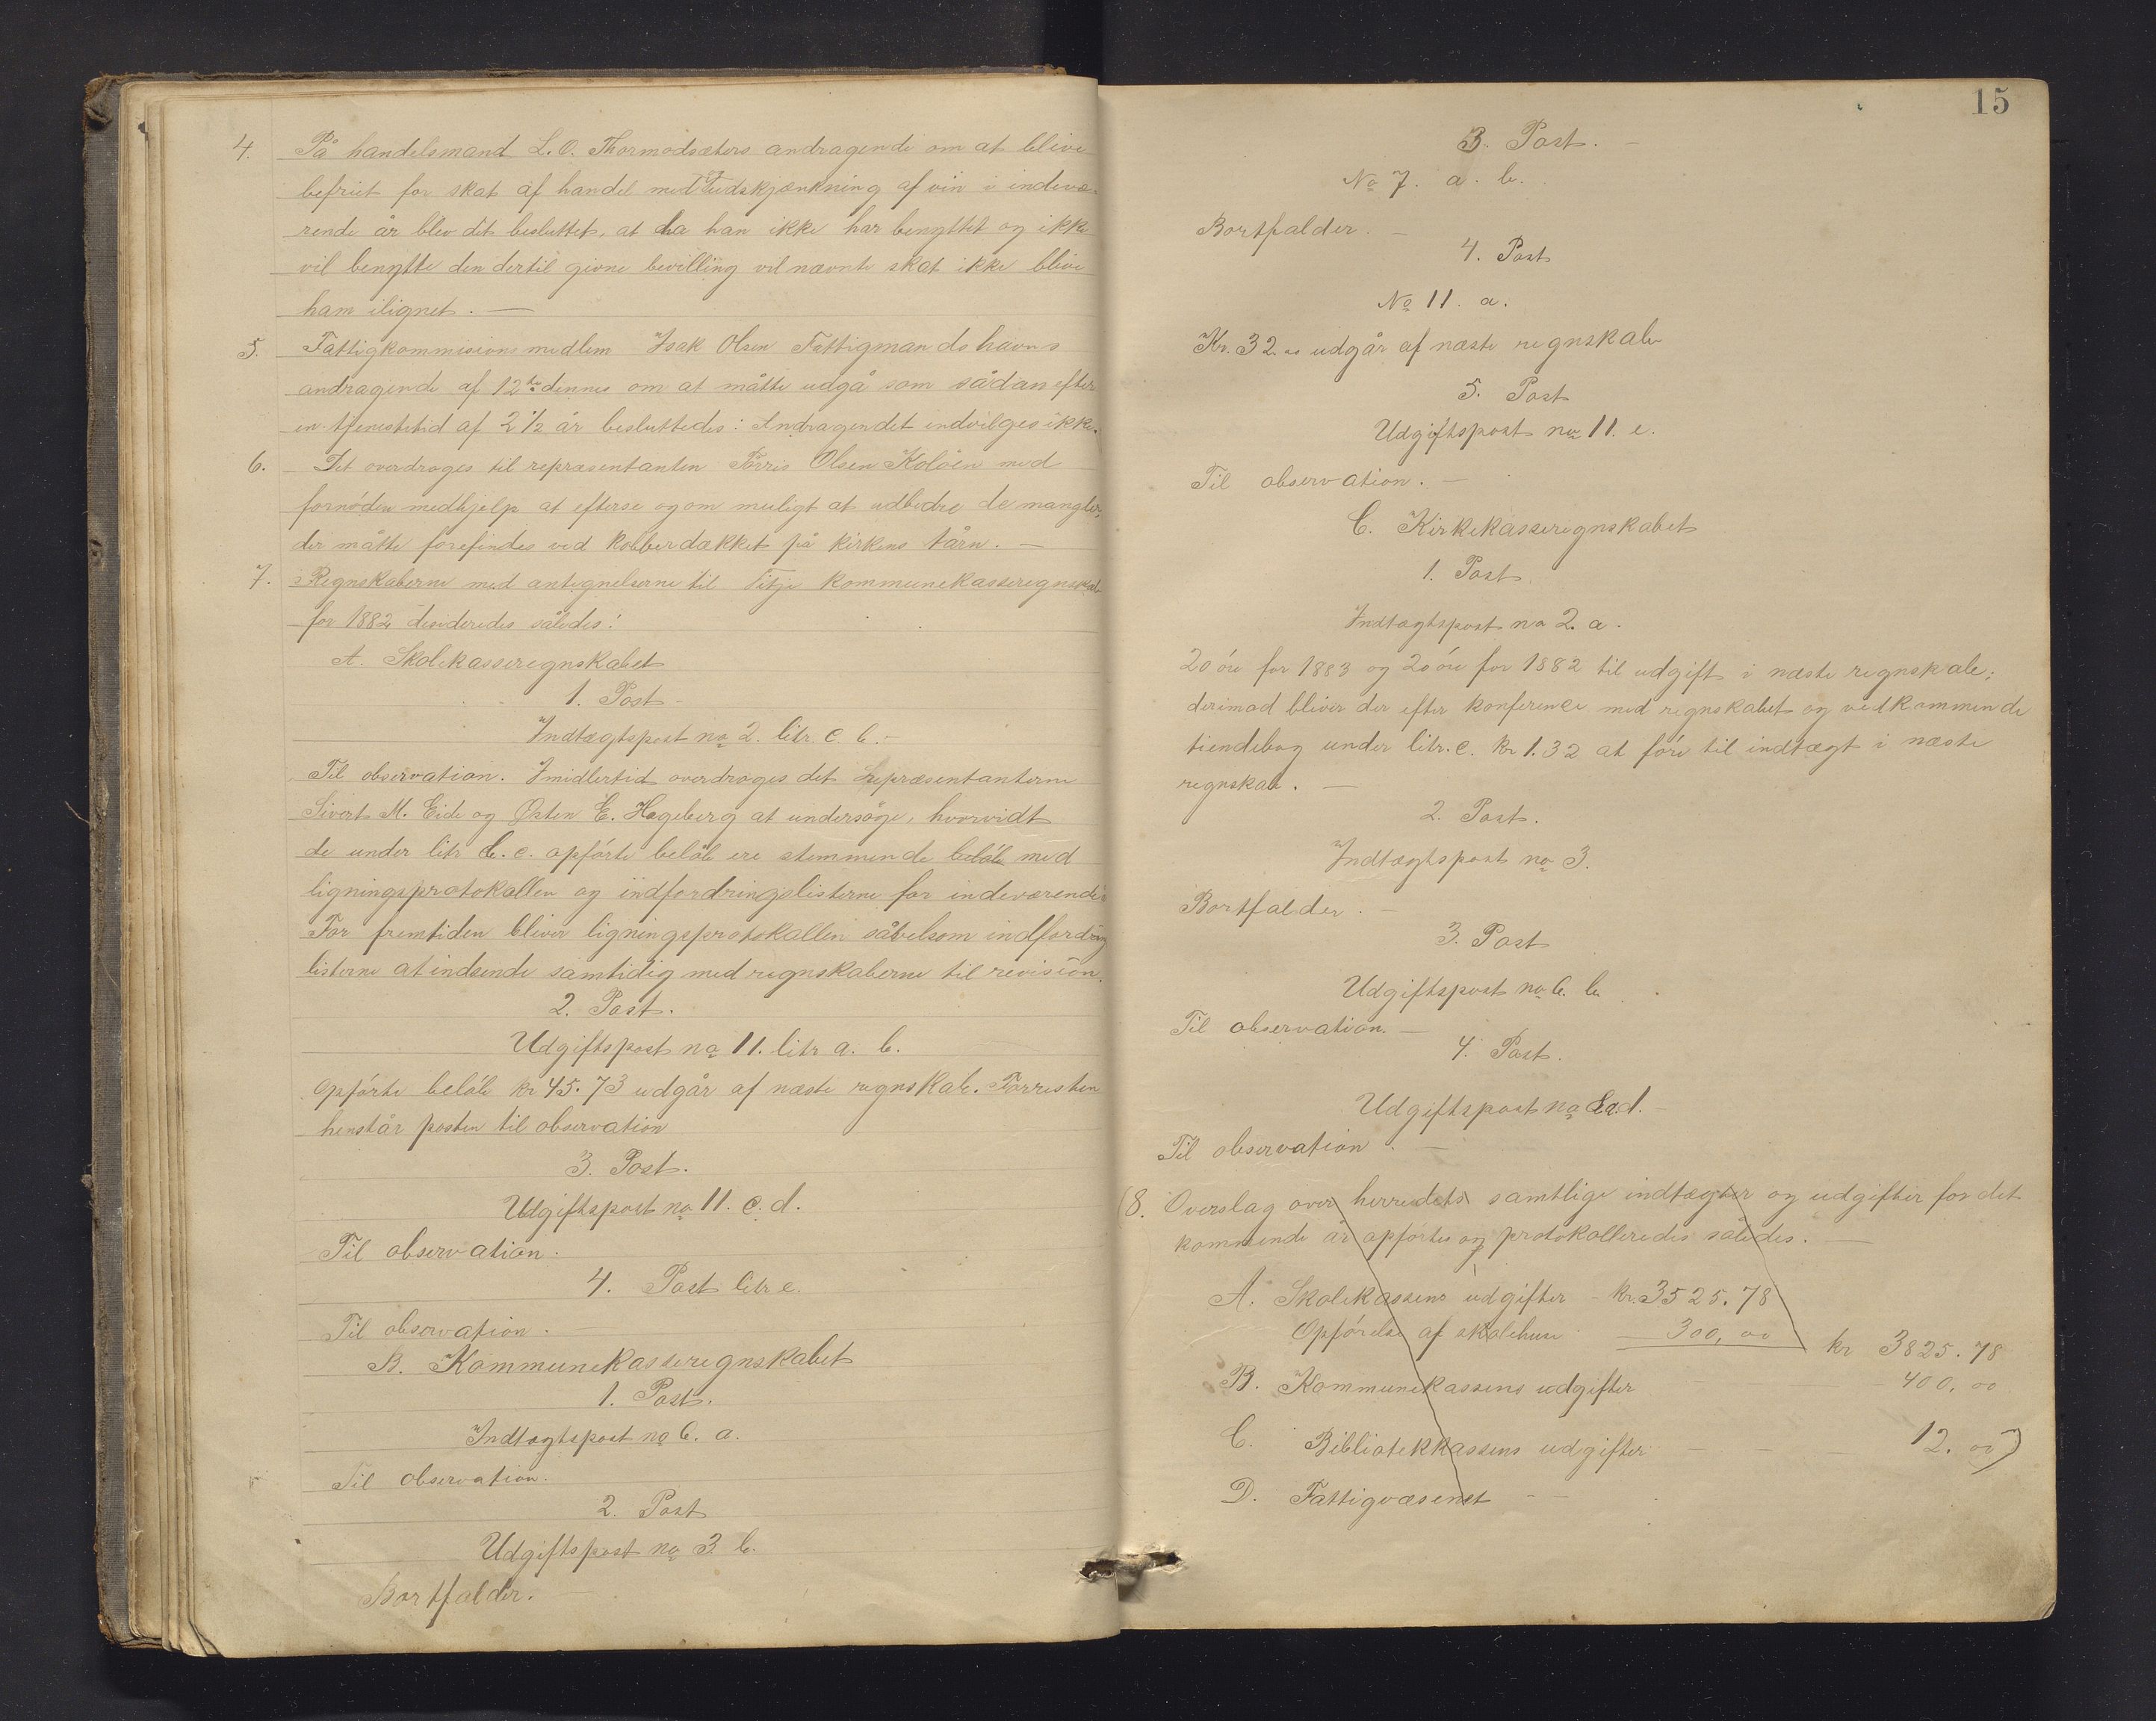 4. På handelsmand L. O. Thormodsæters andragende om at blive
befriet for skat af handel med Udskjænkning af vin i indevæ-
rende år blev det besluttet, at da han ikke har benyttet og ikke
vil benytte den dertil givne bevilling vil nævnte skat ikke blive
ham ilignet. —
5. Fattigkommisionsmedlem Isak Olsen Fattigmandshavns
andragende af 12te dennes om at måtte udgå som sådan efter
en tjenestetid af 2 1/2 år besluttedes: Andragendet indvilges ikke.
6. Det overdroges til repræsentanten Torris Olsen Koløen med
fornøden medhjelp at efterse og om muligt at udbedre de mangler,
der måtte forefindes ved kobberdækket på kirkens tårn. —
7. Regnskaberne med antegnelserne til Fitje kommunekasseregnskab
for 1882 desideredes således:
A. Skolekasseregnskabet
1. Post -
Indtægtspost no 2. litr. c. b. -
Til observation. Imidlertid overdroges det repræsentanterne
Sivert M. Eide og Østen E. Hageberg at undersøge, hvorvidt
de under litr b. c. opførte beløb ere stemmende beløb med
ligningsprotokollen og indfordringslisterne for indeværende
For fremtiden bliver ligningsprotokollen såvelsom indfordring
listerne at indsende samtidig med regnskaberne til revision.
2. Post.
Udgiftspost no 11. litr a. b.
Opførte beløb kr 45.73 udgår af næste regnskab. Forresten
henstår posten til observation
3. Post.
Udgiftspost no 11. c. d.
Til observation.
4. Post litr e.
Til observation.
B. Kommunekasseregnskabet
1. Post.
Indtægtspost no 6. a.
Til observation.
2. Post
Udgiftspost no 3 b.
Bortfalder. —
15
3. Post. —
No 7. a. b.
Bortfalder. —
4. Post
No 11. a.
Kr. 32.00 udgår af næste regnskab
5. Post
Udgiftspost no 11. e.
Til observation. —
C. Kirkekasseregnskabet
1. Post
Indtægtspost no 2. a.
20 øre for 1883 og 20 øre for 1882 til udgift i næste regnskab;
derimod bliver der efter konferense med regnskabet og vedkommende
tiendebog under litr. c. kr 1.32 at føre til indtægt i næste
regnskab. —
2. Post.
Indtægtspost no 3.
Bortfalder. —
3. Post
Udgiftspost no 6. b.
Til observation. —
4. Post.
Udgiftspost no d. —
Til observation. —
(8. Overslag over herredets samtlige indtægter og udgifter for det
kommende år opførtes og protokolleredes således. —
A. Skolekassens udgifter - kr. 3525.78
Opførelse af skolehuse 300,00 kr 3825.78
B. Kommunekassens udgifter — — 400,00
C. Bibliotekkassens udgifter — — 12.00)
D. Fattigvæsenet —